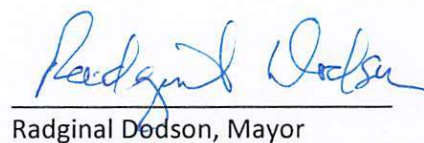 Radginal Dodson
Radginal Dodson, Mayor